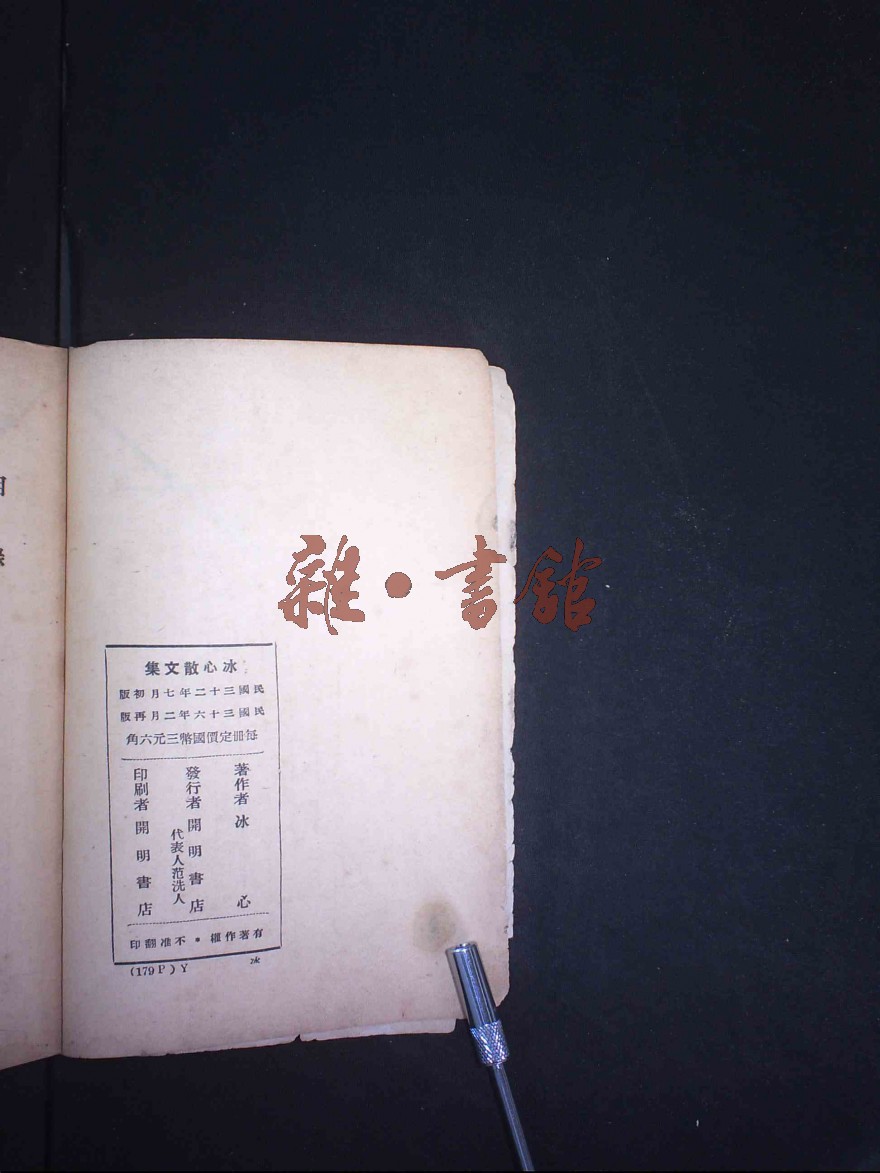 雜·書館
冰心散文集
民國三十二年七月初版
民國三十六年二月再版
每冊定價國幣三元六角
著作者 冰心
發行者 開明書店
代表人范洗人
印刷者 開明書店
有著作權·不准翻印
(179P)Y 冰